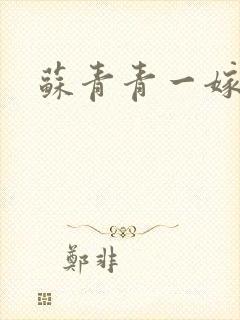 蘇青青一嫁
鄭非